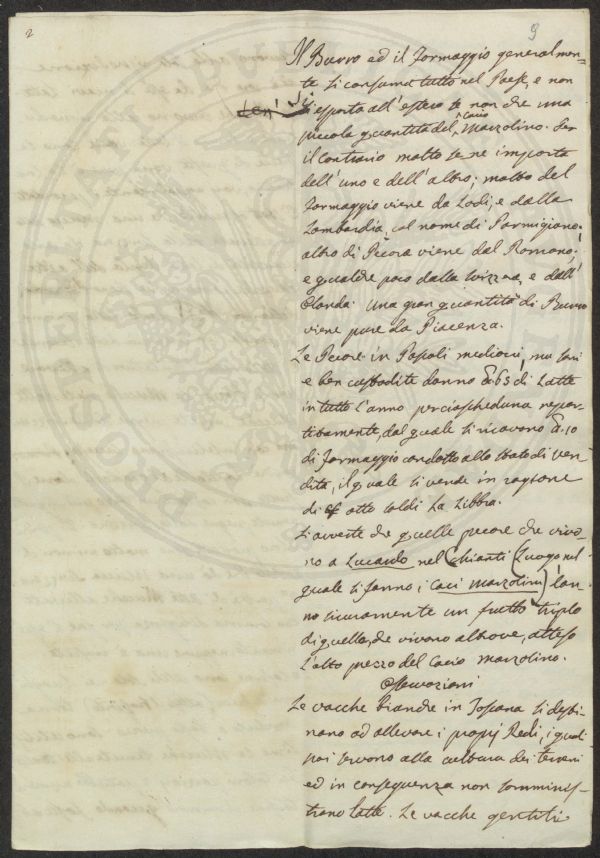 2
9
Il Burro ed il Formaggio generalmen-
te si consuma tutto nel Paese, e non
si esporta all'estero se non che una
piccola quantità del Cacio Marzolino. Per
il contrario molto se ne importa
dell'uno e dell'altro; molto del
Formaggio viene da Lodi, e dalla
Lombardia, col nome di Parmigiano.
altro di Pecora viene dal Romano;
e qualche poco dalla Svizzera, e dall'
Olanda. Una gran quantità di Burro
viene pure da Piacenza.
Le Pecore in Pascoli mediocri, ma sani
e ben custodite danno 65 di Latte
in tutto l'anno per ciascheduna repar-
titamente, dal quale si ricavono 10
di Formaggio condotto allo stato di ven-
dita, il quale si vende in ragione
di otto soldi la Libbra.
Si avverte che quelle pecore che vivo-
no a Lucardo nel Chianti (Luogo nel
quale si fanno i Caci Marzolini) fan-
no sicuramente un frutto triplo
di quelle, che vivono altrove, atteso
l'alto prezzo del Cacio Marzolino.
Osservazioni
Le vacche bianche in Toscana si desti-
nano ad allevare i proprj Redi, i quali
poi servono alla cultura dei terreni
ed in conseguenza non somminis-
trano Latte. Le vacche gentili